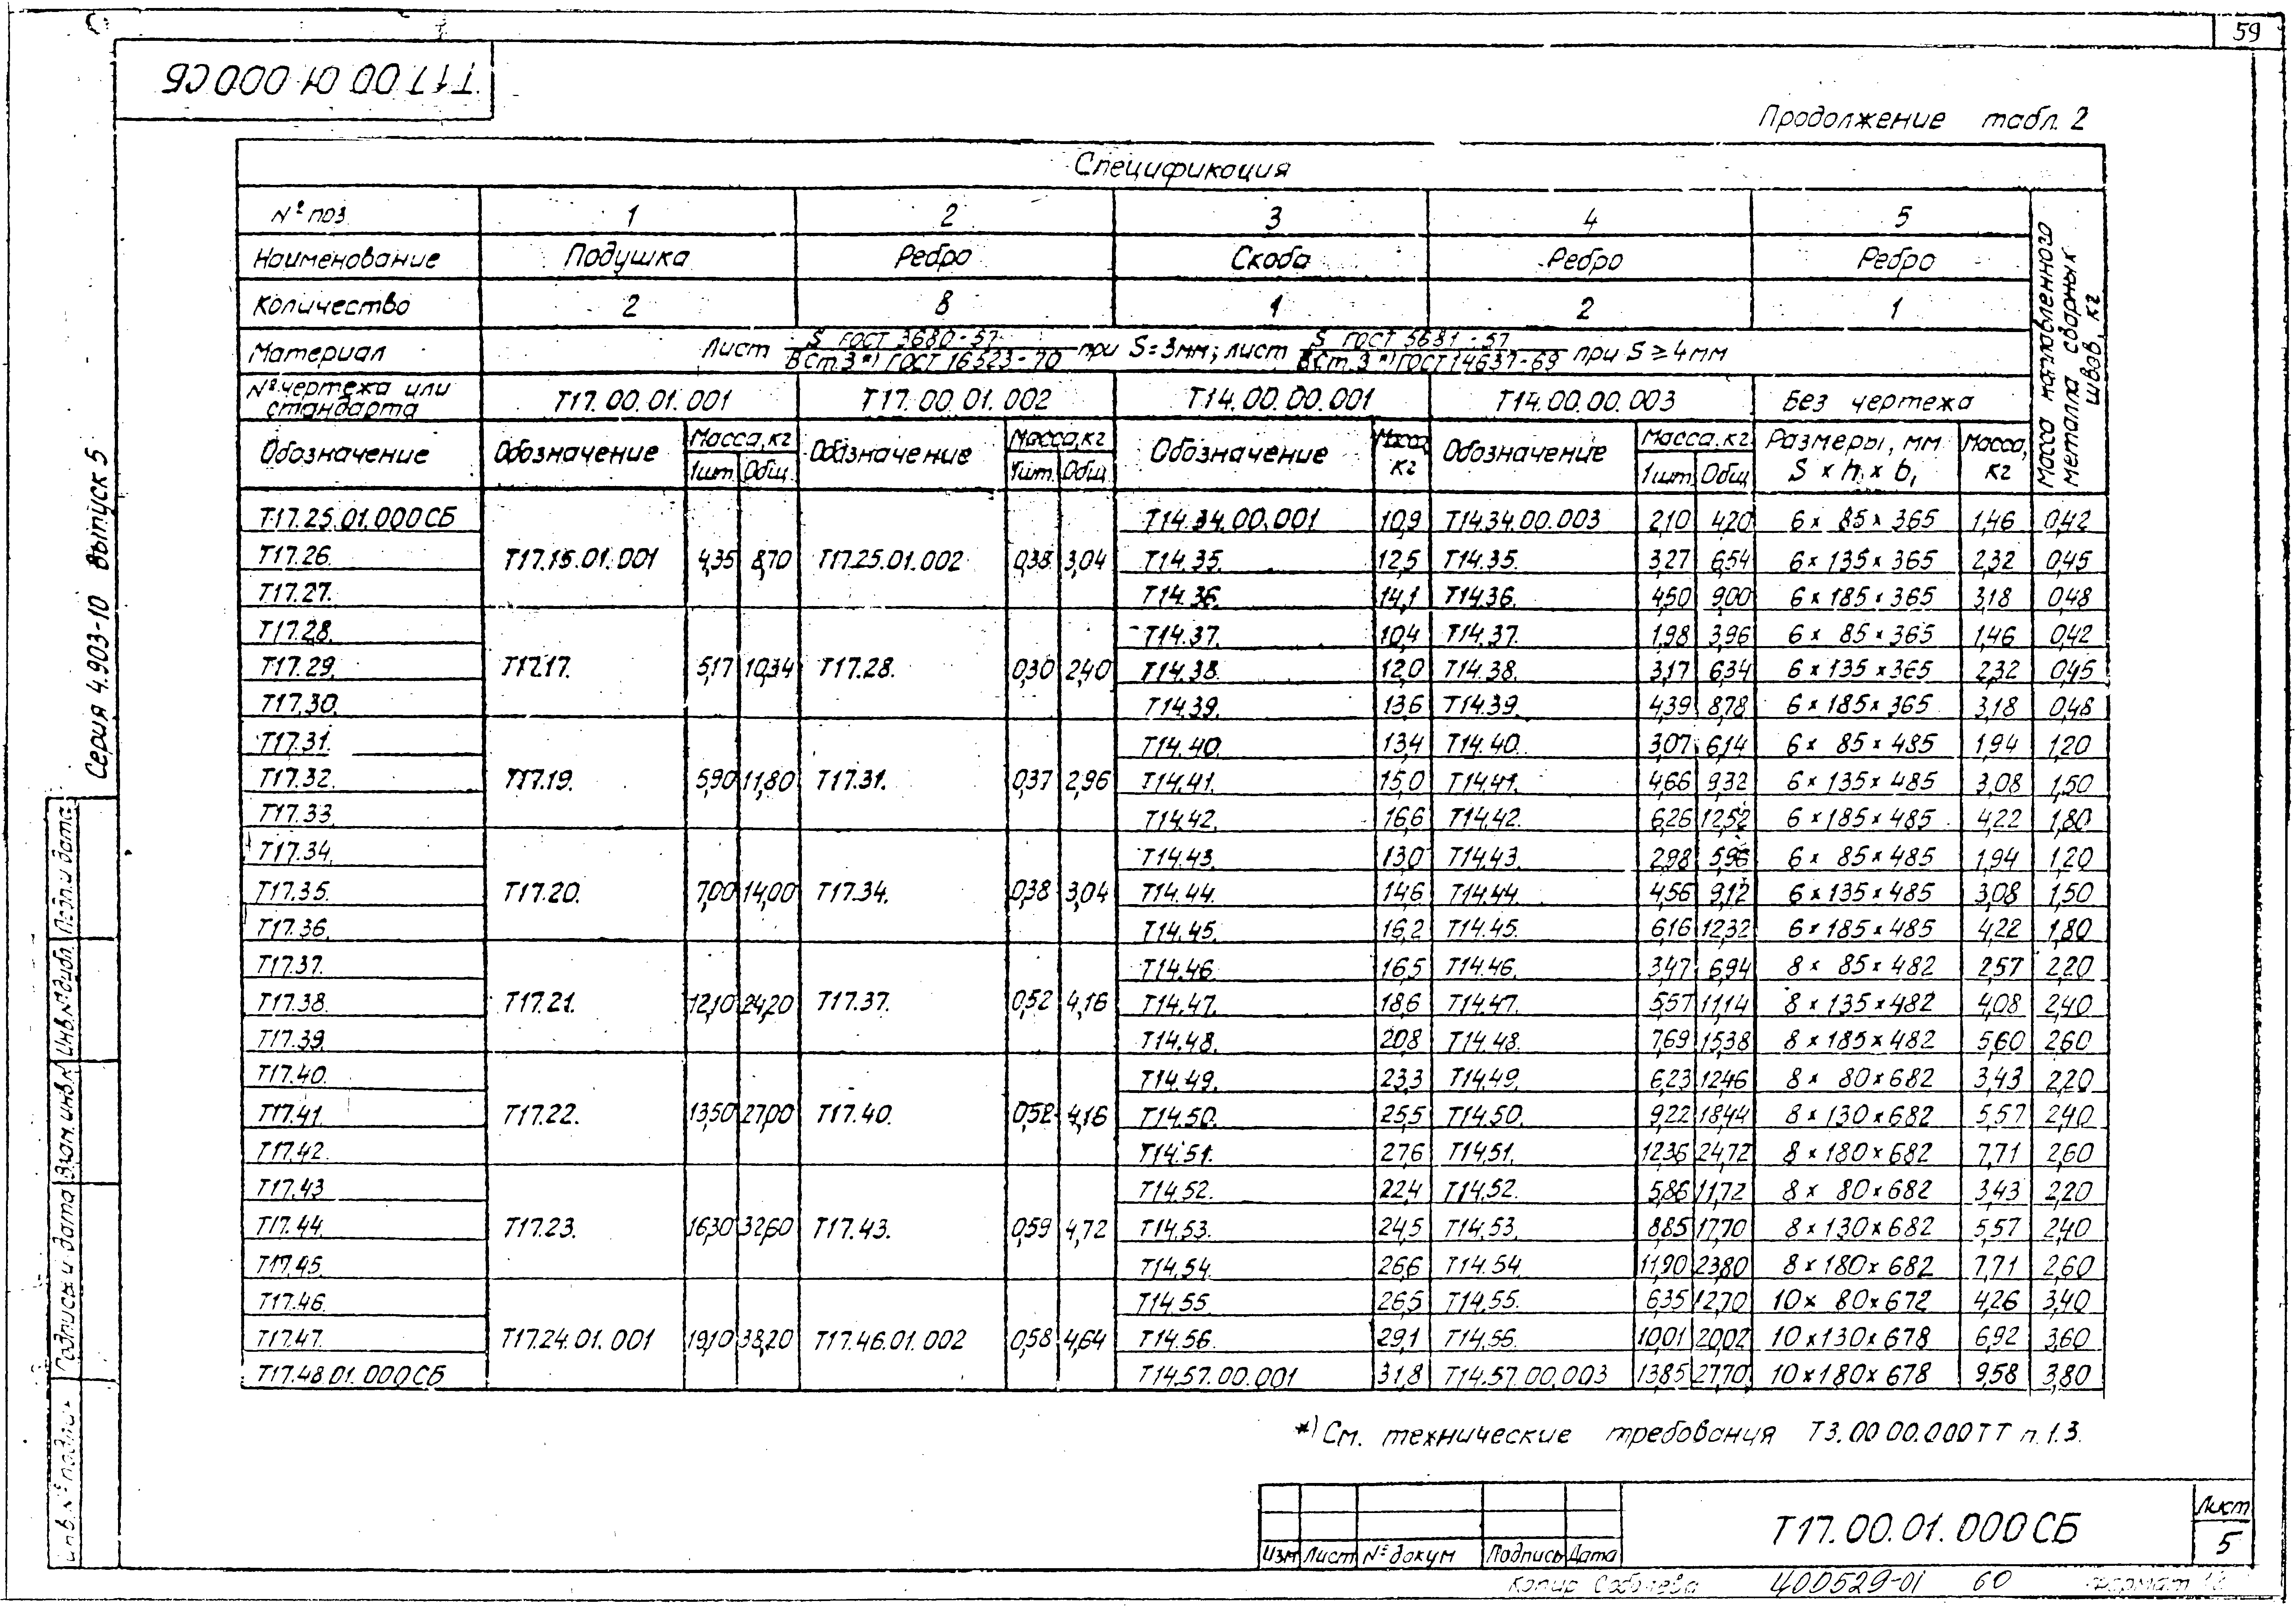 59
Т17.00.01.000СБ
Продолжение табл. 2
Спецификация
№ поз. 1 2 3 4 5
Наименование Подушка Ребро Скоба Ребро Ребро
Количество 2 8 1 2 1
Материал Лист S ГОСТ 3680-57 / ВСт.3*) ГОСТ 16523-70 при S=3мм; лист S ГОСТ 5681-57 / ВСт.3*) ГОСТ 14637-69 при S≥4мм
№ чертежа или стандарта Т17.00.01.001 Т17.00.01.002 Т14.00.00.001 Т14.00.00.003 Без чертежа
Обозначение Обозначение Масса, кг 1шт. Общ. Обозначение Масса, кг 1шт. Общ. Обозначение Масса, кг Обозначение Масса, кг 1шт. Общ. Размеры, мм S x h₁ x b₁ Масса, кг
Масса наплавленного металла сварных швов, кг
Т17.25.01.000СБ Т14.34.00.001 10,9 Т14.34.00.003 2,10 4,20 6 x 85 x 365 1,46 0,42
Т17.26. Т17.15.01.001 4,35 8,70 Т17.25.01.002 0,38 3,04 Т14.35. 12,5 Т14.35. 3,27 6,54 6 x 135 x 365 2,32 0,45
Т17.27. Т14.36. 14,1 Т14.36. 4,50 9,00 6 x 185 x 365 3,18 0,48
Т17.28. Т14.37. 10,4 Т14.37. 1,98 3,96 6 x 85 x 365 1,46 0,42
Т17.29. Т17.17. 5,17 10,34 Т17.28. 0,30 2,40 Т14.38. 12,0 Т14.38. 3,17 6,34 6 x 135 x 365 2,32 0,45
Т17.30. Т14.39. 13,6 Т14.39. 4,39 8,78 6 x 185 x 365 3,18 0,48
Т17.31. Т14.40. 13,4 Т14.40. 3,07 6,14 6 x 85 x 485 1,94 1,20
Т17.32. Т17.19. 5,90 11,80 Т17.31. 0,37 2,96 Т14.41. 15,0 Т14.41. 4,66 9,32 6 x 135 x 485 3,08 1,50
Т17.33. Т14.42. 16,6 Т14.42. 6,26 12,52 6 x 185 x 485 4,22 1,80
Т17.34. Т14.43. 13,0 Т14.43. 2,98 5,96 6 x 85 x 485 1,94 1,20
Т17.35. Т17.20. 7,00 14,00 Т17.34. 0,38 3,04 Т14.44. 14,6 Т14.44. 4,56 9,12 6 x 135 x 485 3,08 1,50
Т17.36. Т14.45. 16,2 Т14.45. 6,16 12,32 6 x 185 x 485 4,22 1,80
Т17.37. Т14.46. 16,5 Т14.46. 3,47 6,94 8 x 85 x 482 2,57 2,20
Т17.38. Т17.21. 12,10 24,20 Т17.37. 0,52 4,16 Т14.47. 18,6 Т14.47. 5,57 11,14 8 x 135 x 482 4,08 2,40
Т17.39. Т14.48. 20,8 Т14.48. 7,69 15,38 8 x 185 x 482 5,60 2,60
Т17.40. Т14.49. 23,3 Т14.49. 6,23 12,46 8 x 80 x 682 3,43 2,20
Т17.41. Т17.22. 13,50 27,00 Т17.40. 0,52 4,16 Т14.50. 25,5 Т14.50. 9,22 18,44 8 x 130 x 682 5,57 2,40
Т17.42. Т14.51. 27,6 Т14.51. 12,36 24,72 8 x 180 x 682 7,71 2,60
Т17.43 Т14.52. 22,4 Т14.52. 5,86 11,72 8 x 80 x 682 3,43 2,20
Т17.44. Т17.23. 16,30 32,60 Т17.43. 0,59 4,72 Т14.53. 24,5 Т14.53. 8,85 17,70 8 x 130 x 682 5,57 2,40
Т17.45. Т14.54. 26,6 Т14.54. 11,90 23,80 8 x 180 x 682 7,71 2,60
Т17.46. Т14.55. 26,5 Т14.55. 6,35 12,70 10 x 80 x 672 4,26 3,40
Т17.47. Т17.24.01.001 19,10 38,20 Т17.46.01.002 0,58 4,64 Т14.56. 29,1 Т14.56. 10,01 20,02 10 x 130 x 678 6,92 3,60
Т17.48.01.000СБ Т14.57.00.001 31,8 Т14.57.00.003 13,85 27,70 10 x 180 x 678 9,58 3,80
*) См. технические требования Т3.00.00.000ТТ п.1.3.
Изм Лист № докум Подпись Дата
Т17.00.01.000СБ
Лист
5
Копир Соболева 400529-01 60 формат
Серия 4.903-10 Выпуск 5
Инв.№подлин. Подпись и дата Взам.инв.№ Инв.№дубл. Подп.и дата